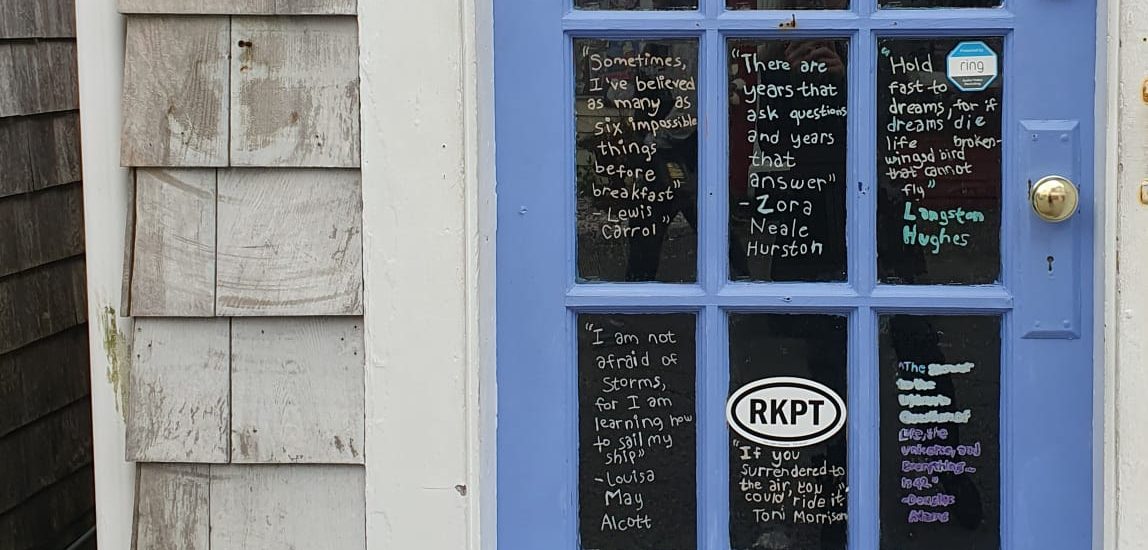 "Sometimes,
I've believed
as many as
six impossible
things
before
breakfast"
- Lewis
Carrol "
"There are
years that
ask questions
and years
that
answer"
- Zora
Neale
Hurston
"Hold
fast to
dreams, for if
dreams die
life broken-
winged bird
that cannot
fly"
Langston
Hughes
ring
"I am not
afraid of
Storms,
for I am
learning how
to sail my
ship"
- Louisa
May
Alcott
RKPT
"If you
surrendered to
the air, you
could ride it"
Toni Morrison
"The
to the
Ultimate
Question of
Life, the
universe, and
Everything...
is 42."
-Douglas
Adams